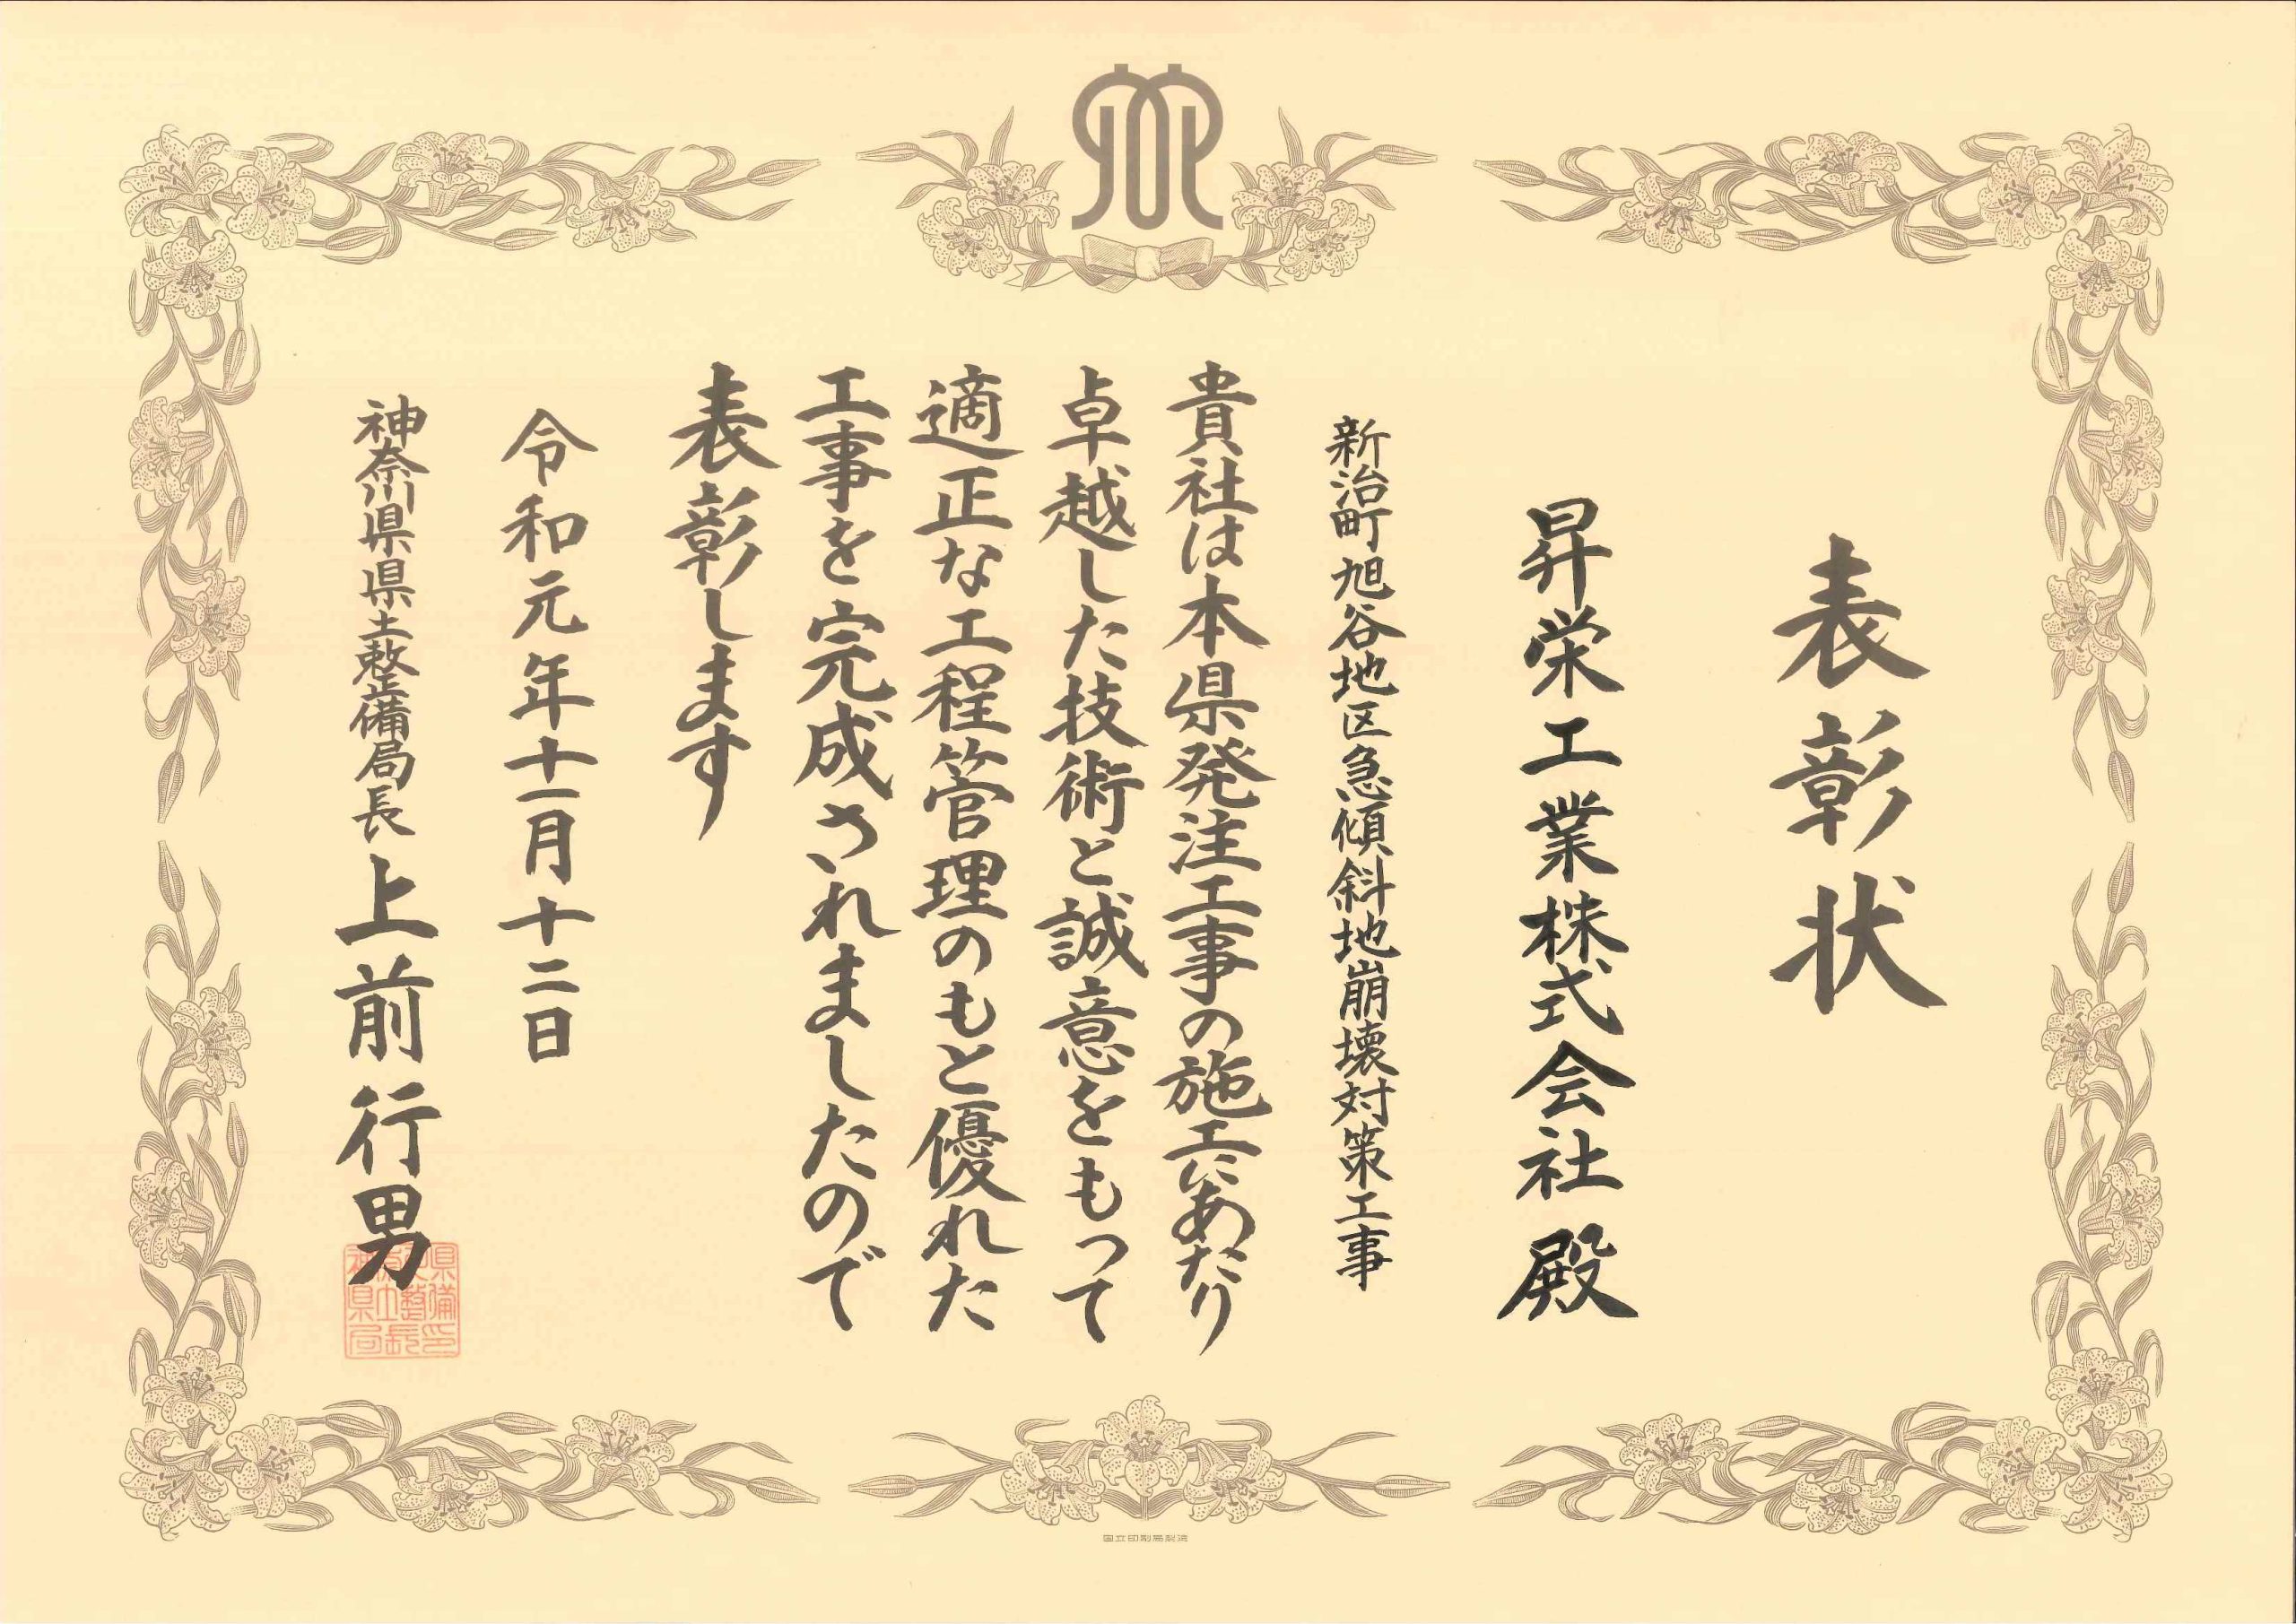 表彰状
昇栄工業株式会社 殿
新治町旭谷地区急傾斜地崩壊対策工事
貴社は本県発注工事の施工にあたり
卓越した技術と誠意をもって
適正な工程管理のもと優れた
工事を完成されましたので
表彰します
令和元年十一月十二日
神奈川県県土整備局長 上前行男
国立印刷局製造